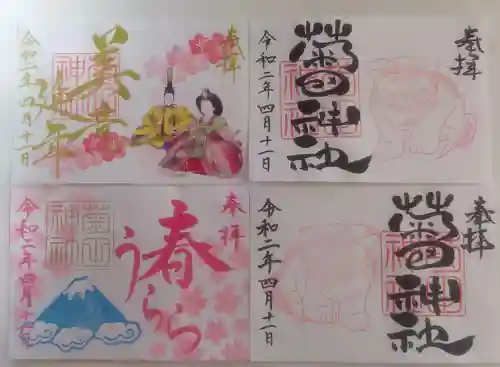 奉拝
美意
延年
令和二年四月十一日
奉拝
神社
令和二年四月十一日
奉拝
春
うらら
神社
令和二年四月十一日
奉拝
神社
令和二年四月十一日